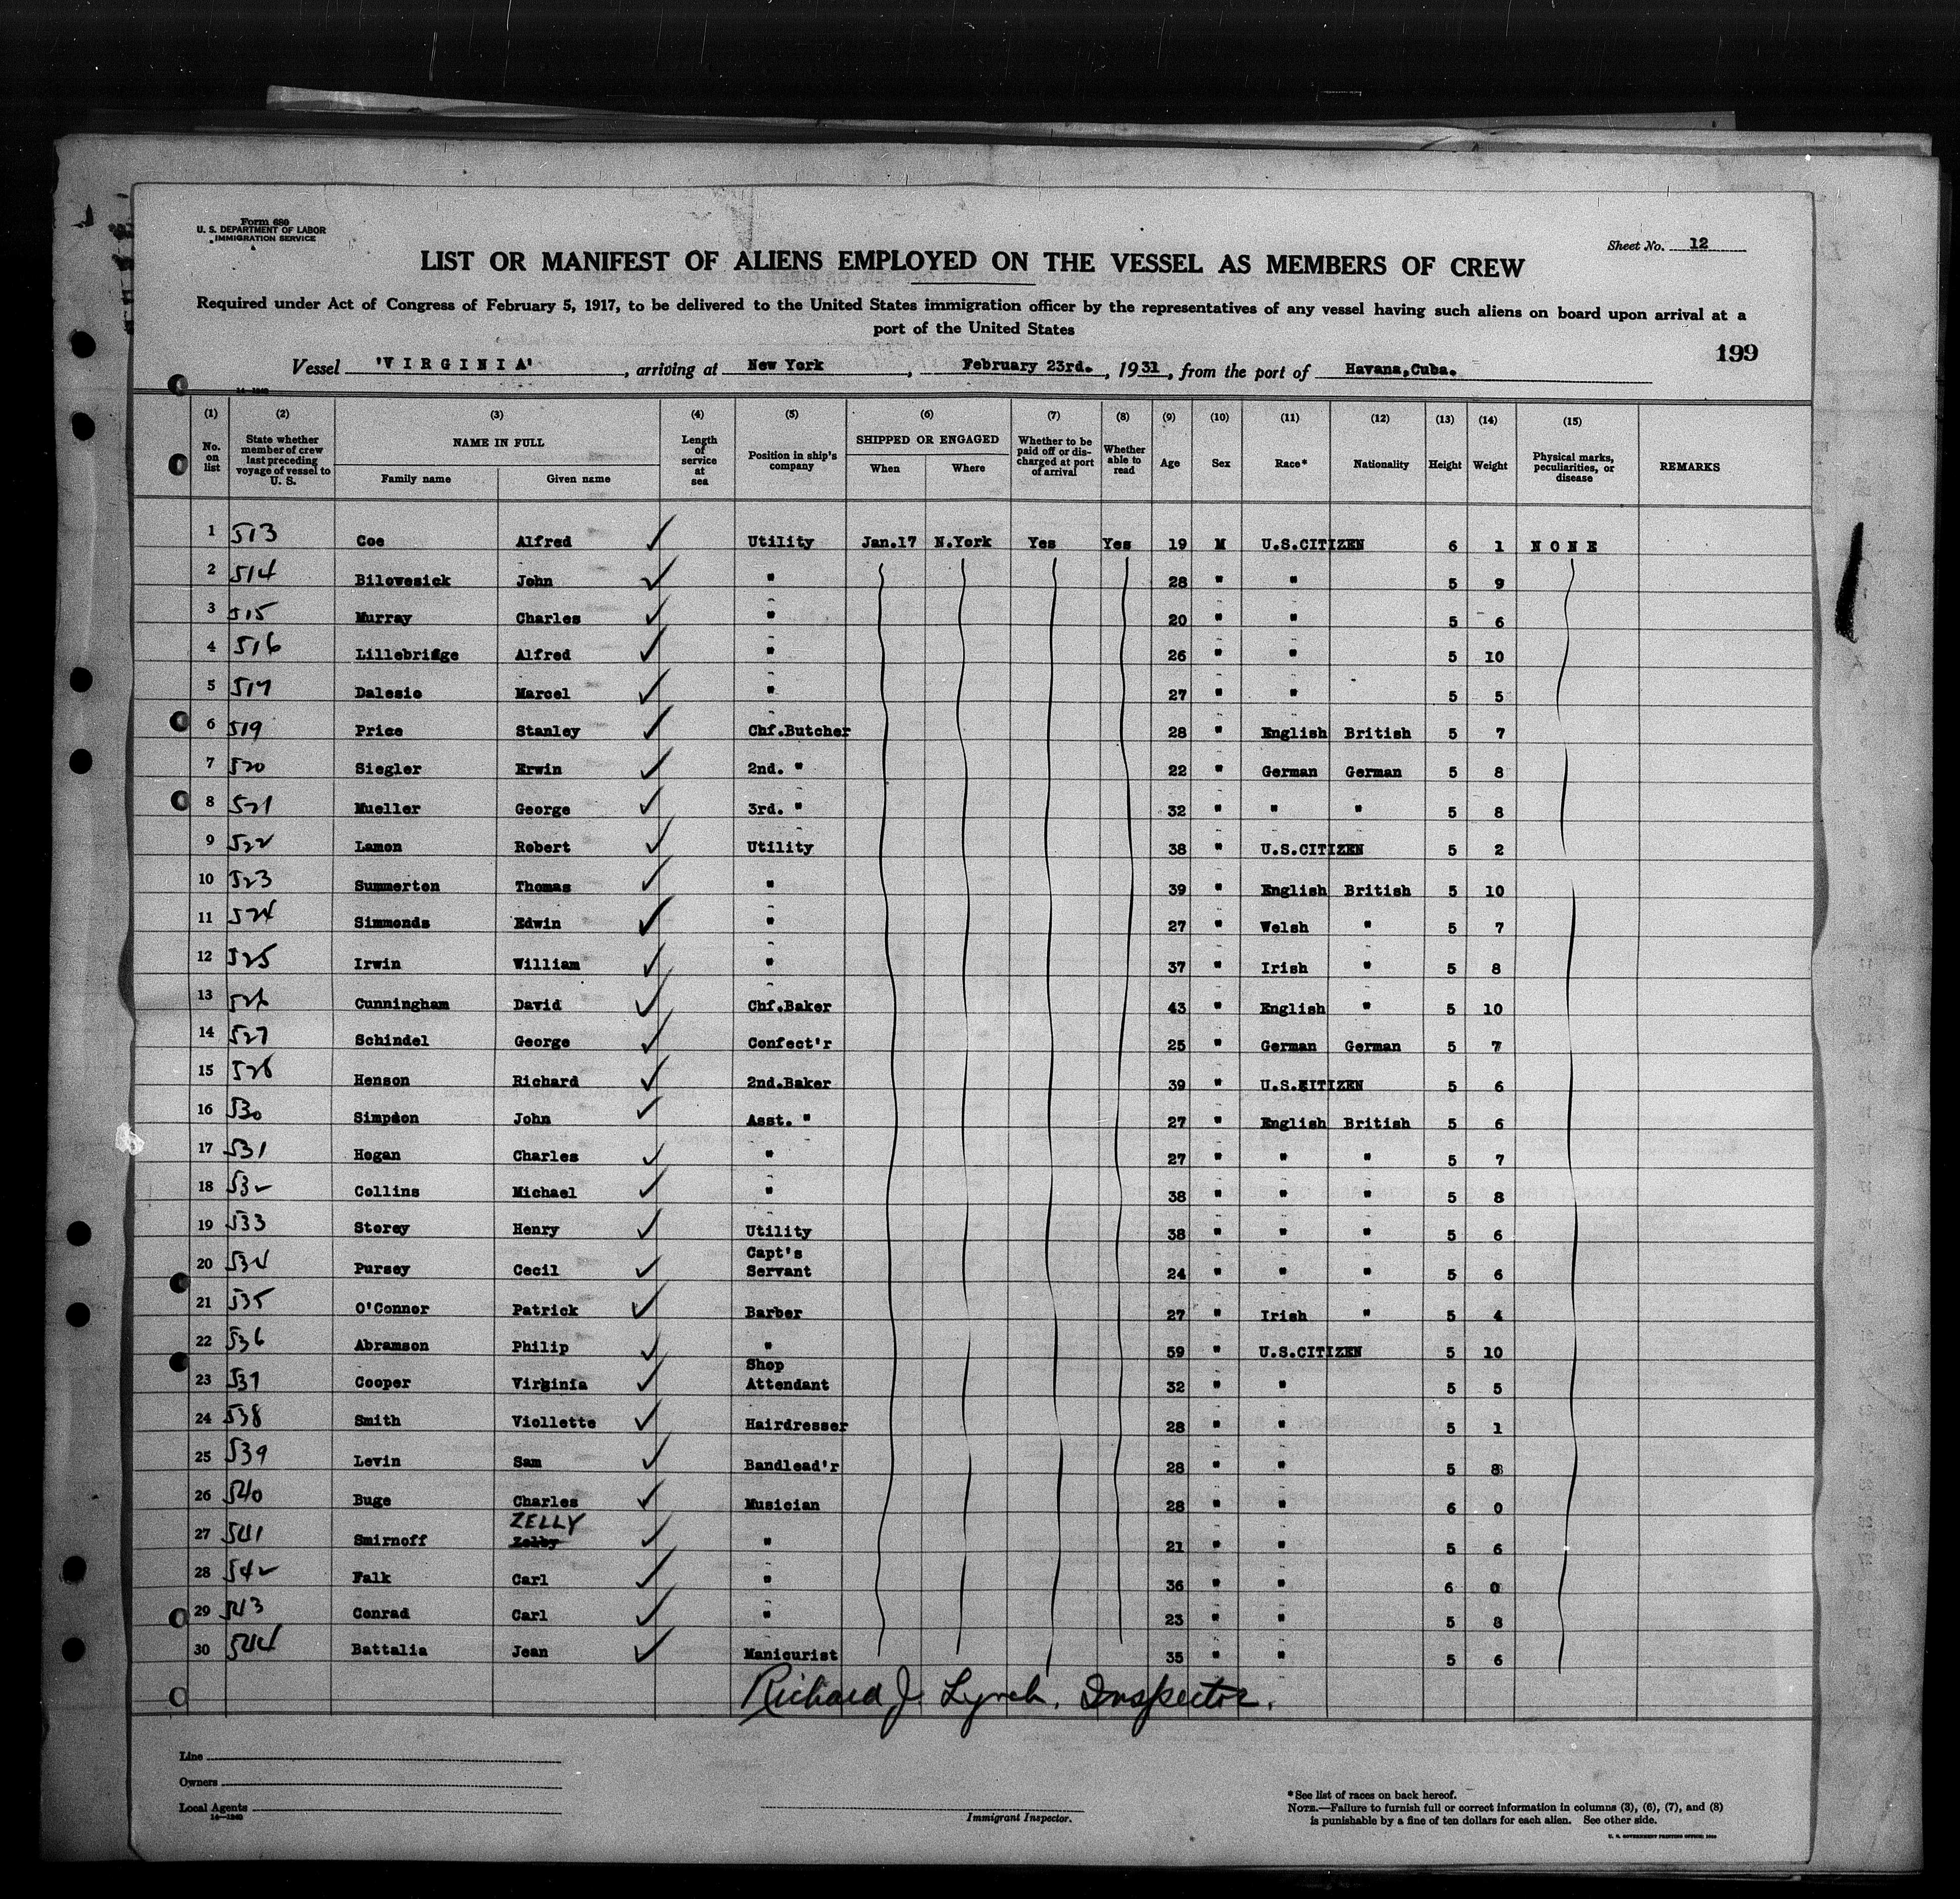 Form 680
U. S. DEPARTMENT OF LABOR
IMMIGRATION SERVICE
Sheet No. 12
LIST OR MANIFEST OF ALIENS EMPLOYED ON THE VESSEL AS MEMBERS OF CREW
Required under Act of Congress of February 5, 1917, to be delivered to the United States immigration officer by the representatives of any vessel having such aliens on board upon arrival at a
port of the United States
199
Vessel 'VIRGINIA', arriving at New York, February 23rd., 1931, from the port of Havana,Cuba.
14—1240
(1) (2) (3) (4) (5) (6) (7) (8) (9) (10) (11) (12) (13) (14) (15)
No. on list State whether member of crew last preceding voyage of vessel to U. S. NAME IN FULL Family name Given name Length of service at sea Position in ship's company SHIPPED OR ENGAGED When Where Whether to be paid off or discharged at port of arrival Whether able to read Age Sex Race* Nationality Height Weight Physical marks, peculiarities, or disease REMARKS
1 513 Coe Alfred ✓ Utility Jan.17 N.York Yes Yes 19 M U.S.CITIZEN 6 1 NONE
2 514 Bilowesick John ✓ " 28 " " 5 9
3 515 Murray Charles ✓ " 20 " " 5 6
4 516 Lillebridge Alfred ✓ " 26 " " 5 10
5 517 Dalesio Marcel ✓ " 27 " " 5 5
6 519 Price Stanley ✓ Chf.Butcher 28 " English British 5 7
7 520 Siegler Erwin ✓ 2nd. " 22 " German German 5 8
8 521 Mueller George ✓ 3rd. " 32 " " " 5 8
9 522 Lamon Robert ✓ Utility 38 " U.S.CITIZEN 5 2
10 523 Summerton Thomas ✓ " 39 " English British 5 10
11 524 Simmonds Edwin ✓ " 27 " Welsh " 5 7
12 525 Irwin William ✓ " 37 " Irish " 5 8
13 526 Cunningham David ✓ Chf.Baker 43 " English " 5 10
14 527 Schindel George ✓ Confect'r 25 " German German 5 7
15 528 Henson Richard ✓ 2nd.Baker 39 " U.S.CITIZEN 5 6
16 530 Simpson John ✓ Asst. " 27 " English British 5 6
17 531 Hogan Charles ✓ " 27 " " " 5 7
18 532 Collins Michael ✓ " 38 " " " 5 8
19 533 Storey Henry ✓ Utility 38 " " " 5 6
20 534 Pursey Cecil ✓ Capt's Servant 24 " " " 5 6
21 535 O'Connor Patrick ✓ Barber 27 " Irish " 5 4
22 536 Abramson Philip ✓ " 59 " U.S.CITIZEN 5 10
23 537 Cooper Virginia ✓ Shop Attendant 32 " " 5 5
24 538 Smith Viollette ✓ Hairdresser 28 " " 5 1
25 539 Levin Sam ✓ Bandlead'r 28 " " 5 8
26 540 Buge Charles ✓ Musician 28 " " 6 0
27 541 Smirnoff ZELLY ✓ " 21 " " 5 6
28 542 Falk Carl ✓ " 36 " " 6 0
29 543 Conrad Carl ✓ " 23 " " 5 8
30 544 Battalia Jean ✓ Manicurist 35 " " 5 6
Richard J. Lynch, Inspector.
Line
Owners
Local Agents
14—1240
Immigrant Inspector.
*See list of races on back hereof.
NOTE.—Failure to furnish full or correct information in columns (3), (6), (7), and (8)
is punishable by a fine of ten dollars for each alien. See other side.